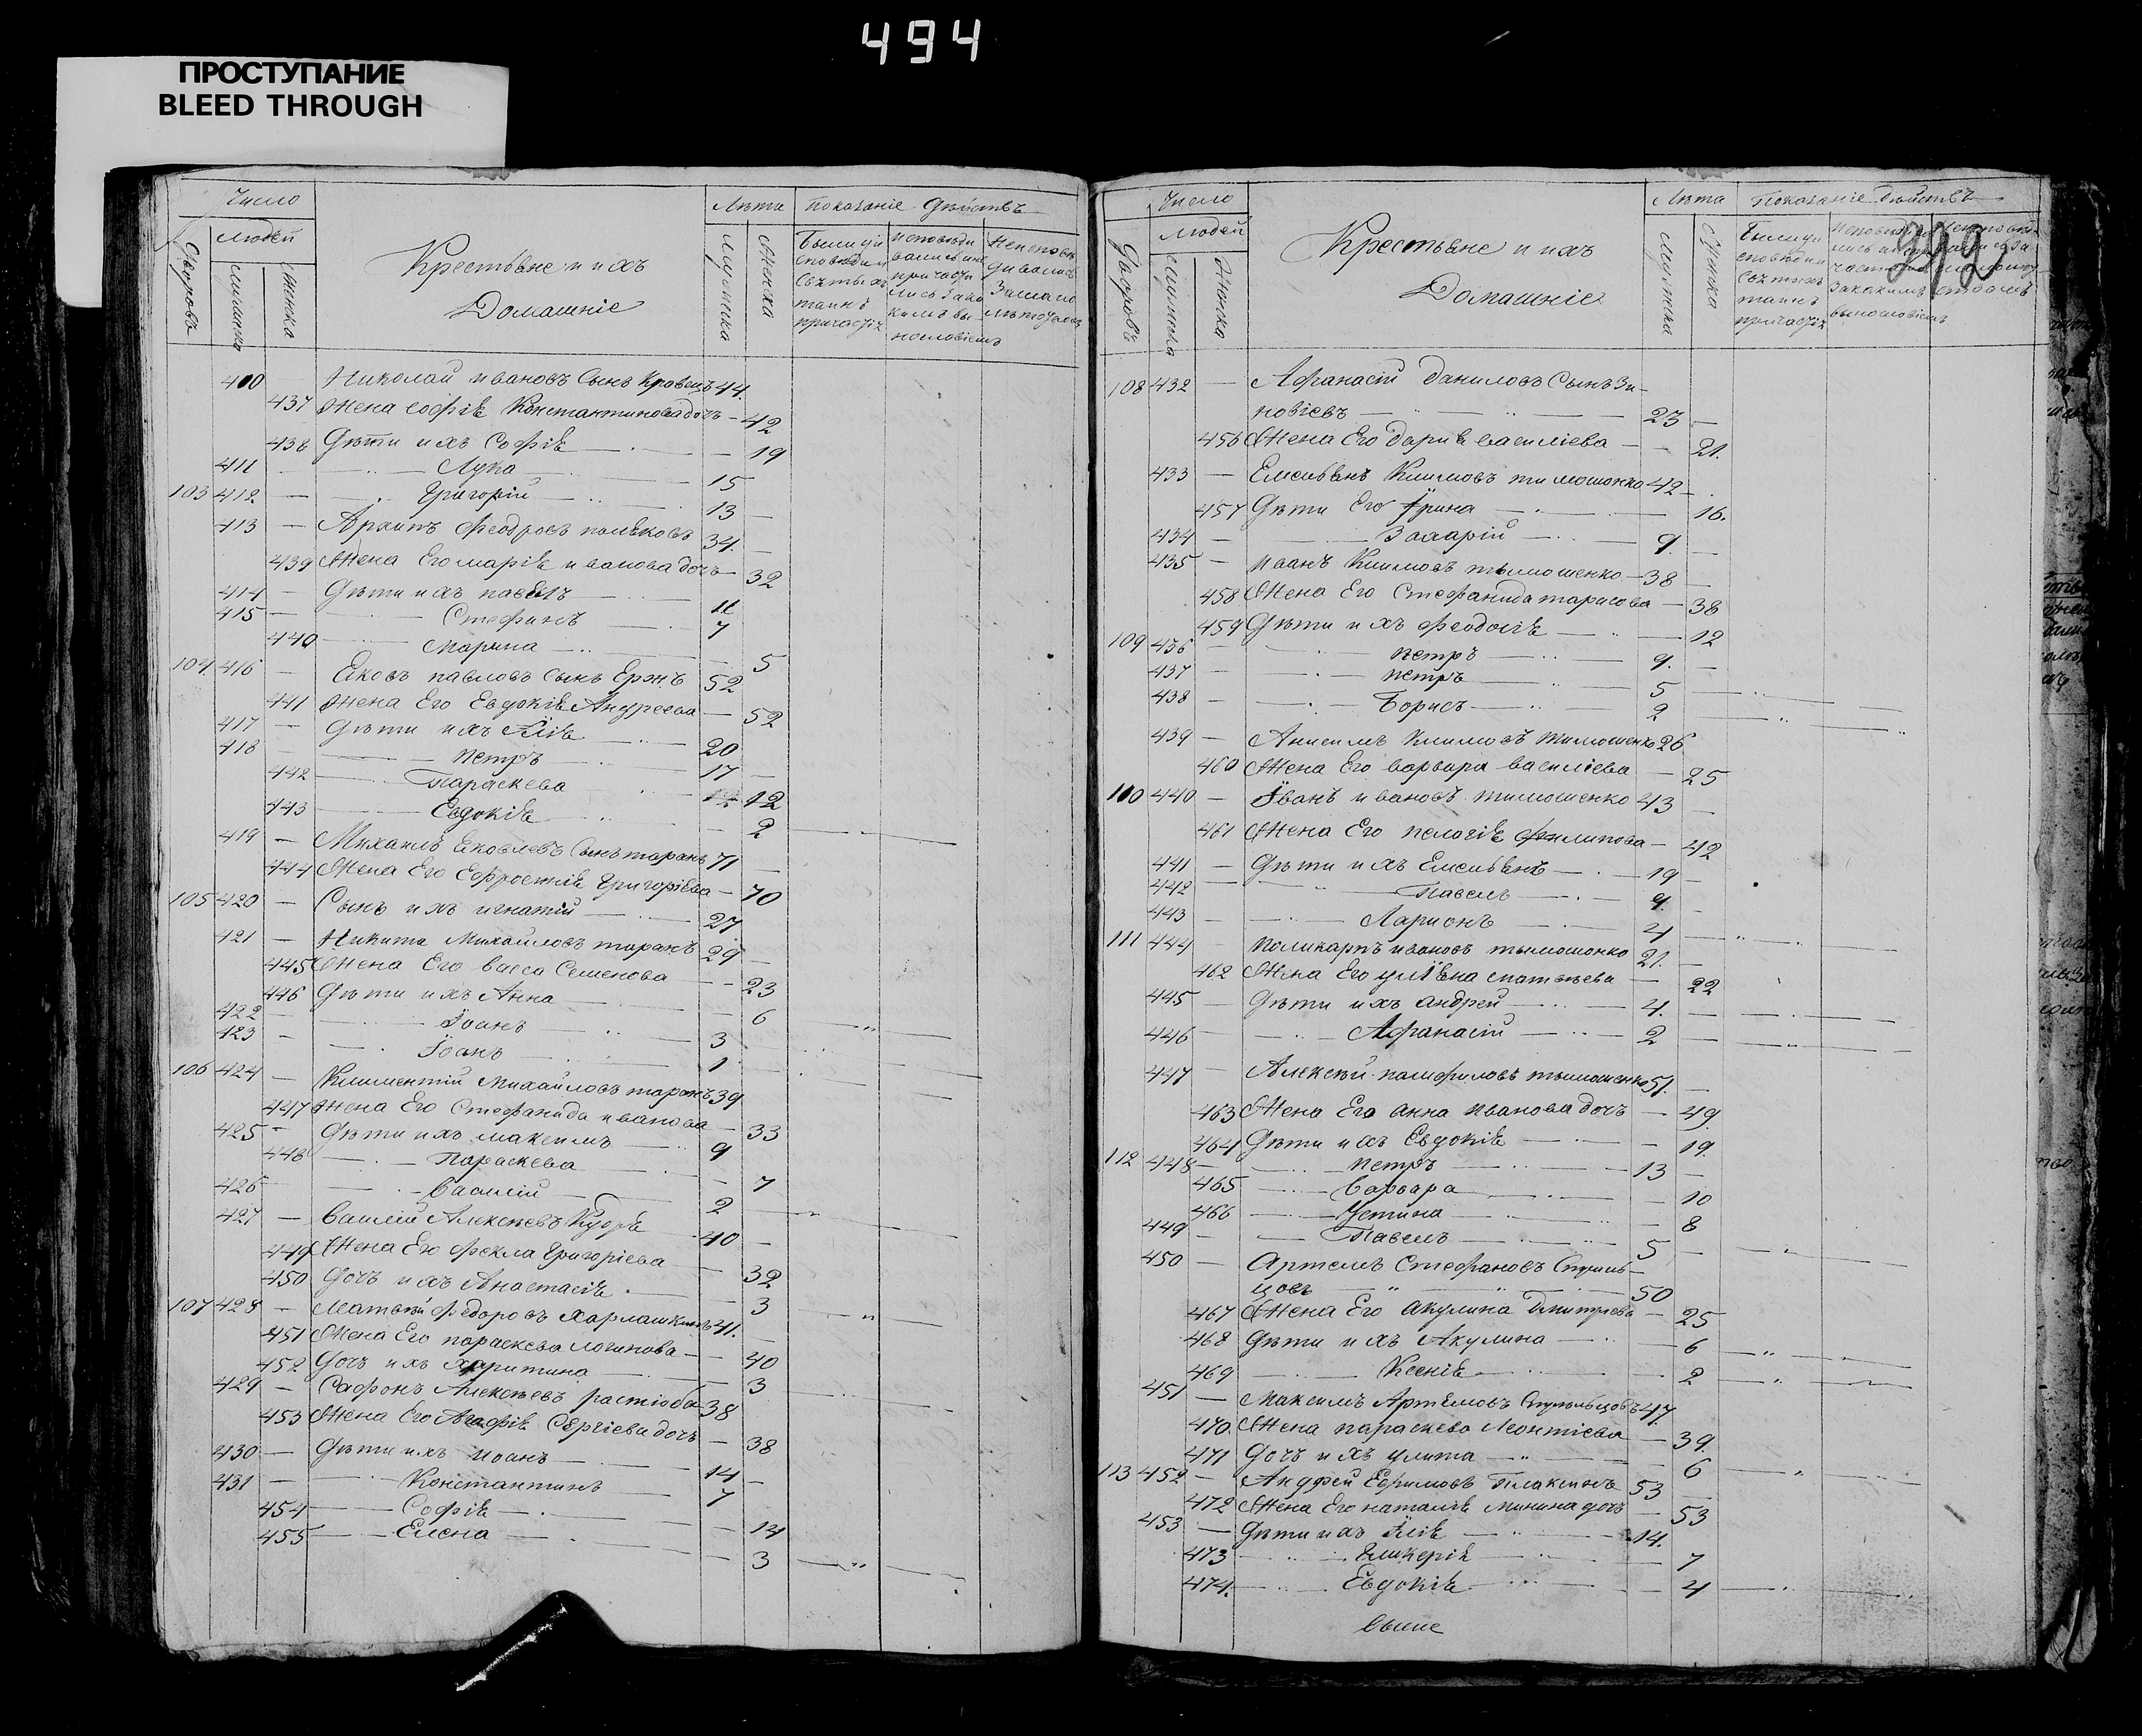 494
ПРОСТУПАНИЕ
BLEED THROUGH
Число
Людей
Дворовъ
Мужеска
Женска
Крестьяне и ихъ
Домашніе
Лѣта
Мужеска
Женска
Показаніе дѣйствъ
400 — Николай ивановъ Сынъ Кравецъ 44.
437 Жена софія Константинова дочь — 42
438 Дѣти ихъ Софія — 19
411 — Лука — 15
103 412 — Григорій — 13 —
413 — Архипъ Феодоровъ поляковъ 34. —
439 Жена Его марія иванова дочь — 32
414 — Дѣти ихъ павелъ — 11
415 — Стефанъ — 7
440 — марина — 5
104. 416 — Яковъ павловъ Сынъ 52
441 Жена Его Евдокія Андреева — 52
417 — Дѣти ихъ Илія — 20
418 — петръ — 17 —
442 — Параскева — 12
443 — Евдокія — 2
419 — Михаилъ Яковлевъ Сынъ таранъ 71 —
444 Жена Его Ефросинія Григоріева — 70
105 420 — Сынъ ихъ игнатій — 27
421 — Никита Михайловъ таранъ 29 —
445 Жена Его васса Семенова — 23
446 Дѣти ихъ Анна — 6
422 — Іоанъ — 3
423 — Іоанъ — 1
106 424 — Климентій Михайловъ таранъ 39
447 Жена Его Стефанида иванова — 33
425 — Дѣти ихъ максимъ — 9
448 — Параскева — 7
426 — василій — 2
427 — василій Алексѣевъ Кудря 40 —
449 Жена Его Фекла Григоріева — 32
450 Дочь ихъ Анастасія — 3
107 428 — матвѣй федоровъ 41.
451 Жена Его параскева логинова — 40
452 Дочь ихъ харитина — 3
429 — Сафонъ Алексѣевъ растіоба 38
453 Жена Его Агафія Сергіева дочь — 38
430 — Дѣти ихъ Иоанъ — 14 —
431 — Константинъ — 7
454 — Софія — 14
455 — Елена — 3
Число
Людей
Дворовъ
Мужеска
Женска
Крестьяне и ихъ
Домашніе
Лѣта
Мужеска
Женска
Показаніе дѣйствъ
108 432 — Афанасій даниловъ Сынъ Зи-
новіевъ — 23 —
456 Жена Его Дарія василіева — 21.
433 — Емельянъ Климовъ тимошонко 42 —
457 Дѣти Его Ірина — 16.
434 — Захарій — 9. —
435 — иванъ Климовъ тымошенко — 38 —
458 Жена Его Стефанида тарасова — 38
459 Дѣти ихъ феодосія — 12
109 436 — петръ — 9. —
437 — петръ — 5
438 — Борисъ — 2
439 — Анисимъ климовъ тимошенко 26
460 Жена Его варвара василіева — 25
110 440 — Іванъ ивановъ тимошенко 43 —
461 Жена Его пелагія филипова — 42
441 — Дѣти ихъ Емельянъ — 19 —
442 — Павелъ — 9. —
443 — Ларионъ — 4
111 444 поликарпъ ивановъ тымошонко 21. —
462 Жена Его матвѣева — 22
445 — Дѣти ихъ андрей — 4. —
446 — Афанасій — 2
447 — Алексѣй памфиловъ тымошенко 51. —
463 Жена Его анна иванова дочь — 49
464 Дѣти ихъ Евдокія — 19.
112 448 — петръ — 13 —
465 — варвара — 10
466 — Устина — 8
449 — Павелъ — 5 —
450 — Артемъ Стефановъ Стрель-
цовъ — 50
467 Жена Его акулина Дмитріева — 25
468 Дѣти ихъ Акулина — 6
469 — Ксенія — 2
451 — Максимъ Артемовъ Стрельцовъ 47.
470. Жена параскева Леонтіева — 39.
471 Дочь ихъ улита — 6
113 452 — Андрей Ефимовъ Плаксинъ 53 —
472 Жена Его наталія минина дочь — 53
453 — Дѣти ихъ Илія — 14.
473 — Гликерія — 7
474. — Евдокія — 4